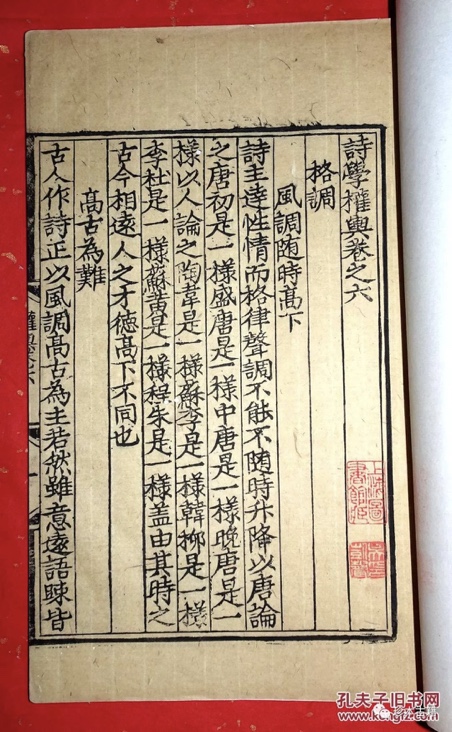 詩學權輿卷之六
格調
風調随時髙下
詩主達性情而格律聲調不能不隨時升降以唐論
之唐初是一様盛唐是一様中唐是一様晚唐是一
様以人論之陶韋是一様蘇李是一様韓柳是一様
李杜是一様蘇黄是一様程朱是一様盖由其時之
古今相逺人之才徳髙下不同也
髙古為難
古人作詩正以風調髙古為主若然雖意逺語踈皆
上海圖書館
孔夫子旧书网
www.kongfz.com